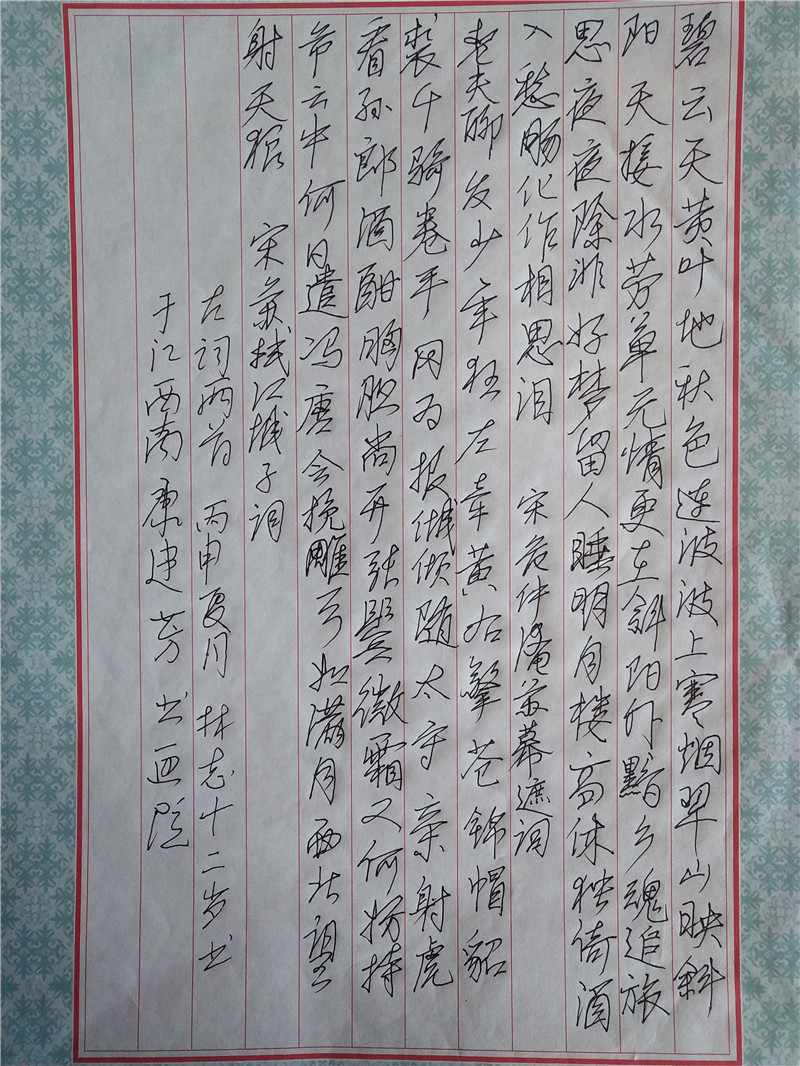 碧云天黄叶地秋色连波波上寒烟翠山映斜
阳天接水芳草无情更在斜阳外黯乡魂追旅
思夜夜除非好梦留人睡明月楼高休独倚酒
入愁肠化作相思泪 宋范仲淹苏幕遮词
老夫聊发少年狂左牵黄右擎苍锦帽貂
裘千骑卷平冈为报倾城随太守亲射虎
看孙郎酒酣胸胆尚开张鬓微霜又何妨持
节云中何日遣冯唐会挽雕弓如满月西北望
射天狼 宋苏轼江城子词
古词两首 丙申夏月 林志十二岁书
于江西南康建芳书画院